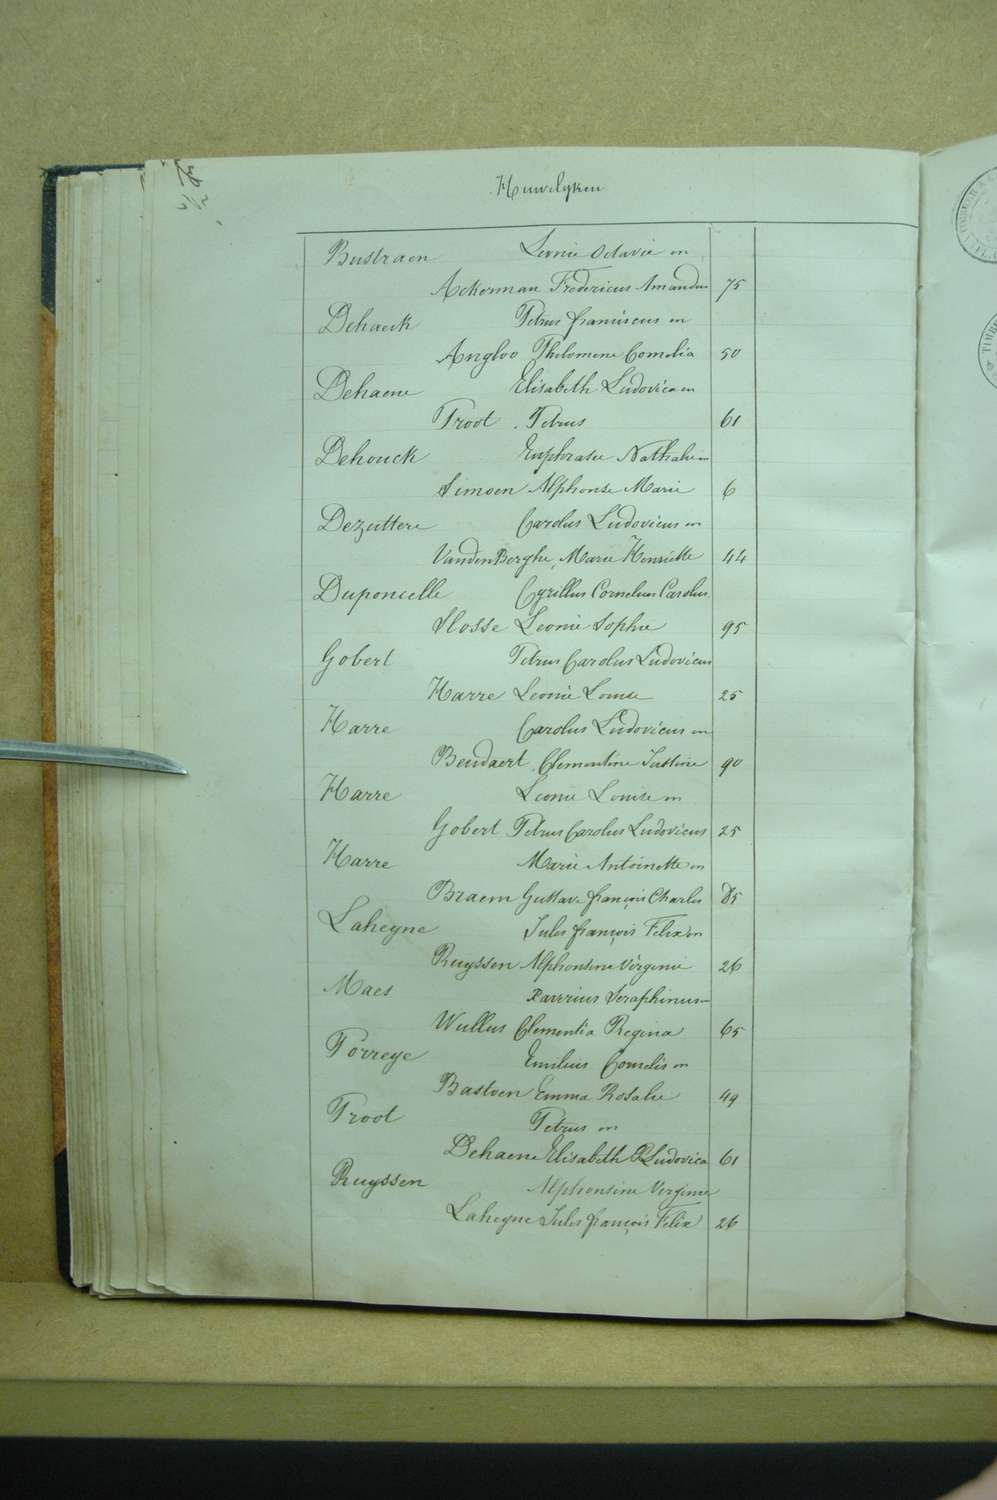 Huwelyken
Bustraen Leonie Octavie en
Ackerman Fredericus Amandus 75
Dehaeck Petrus franciscus en
Angloo Philomene Cornelia 50
Dehaene Elisabeth Ludovica en
Proot Petrus 61
Dehouck Euphrasie Nathalie en
Simoen Alphonse Marie 6
Dezuttere Carolus Ludovicus en
VandenBerghe, Marie Henriette 44
Duponcelle Cyrillus Cornelius Carolus
Slosse Leonie Sophie 95
Gobert Petrus Carolus Ludovicus
Harre Leonie Louise 25
Harre Carolus Ludovicus en
Beudaert Clementine Justine 90
Harre Leonie Louise en
Gobert Petrus Carolus Ludovicus 25
Harre Marie Antoinette en
Braem Gustave françois Charles 85
Laheyne Jules françois Felix en
Ruyssen Alphonsine Virginie 26
Maes Xaverius Seraphinus
Wullus Clementia Regina 65
Porreye Emilius Cornelis en
Bastoen Emma Rosalie 49
Proot Petrus en
Dehaene Elisabeth Ludovica 61
Ruyssen Alphonsine Virginie
Laheyne Jules françois Felix 26